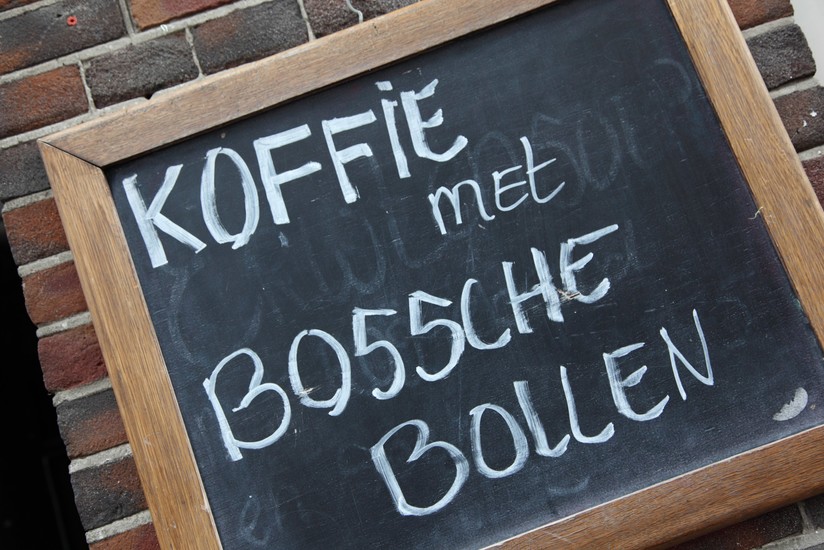 KOFFiE
met
BOSSCHE
BOLLEN